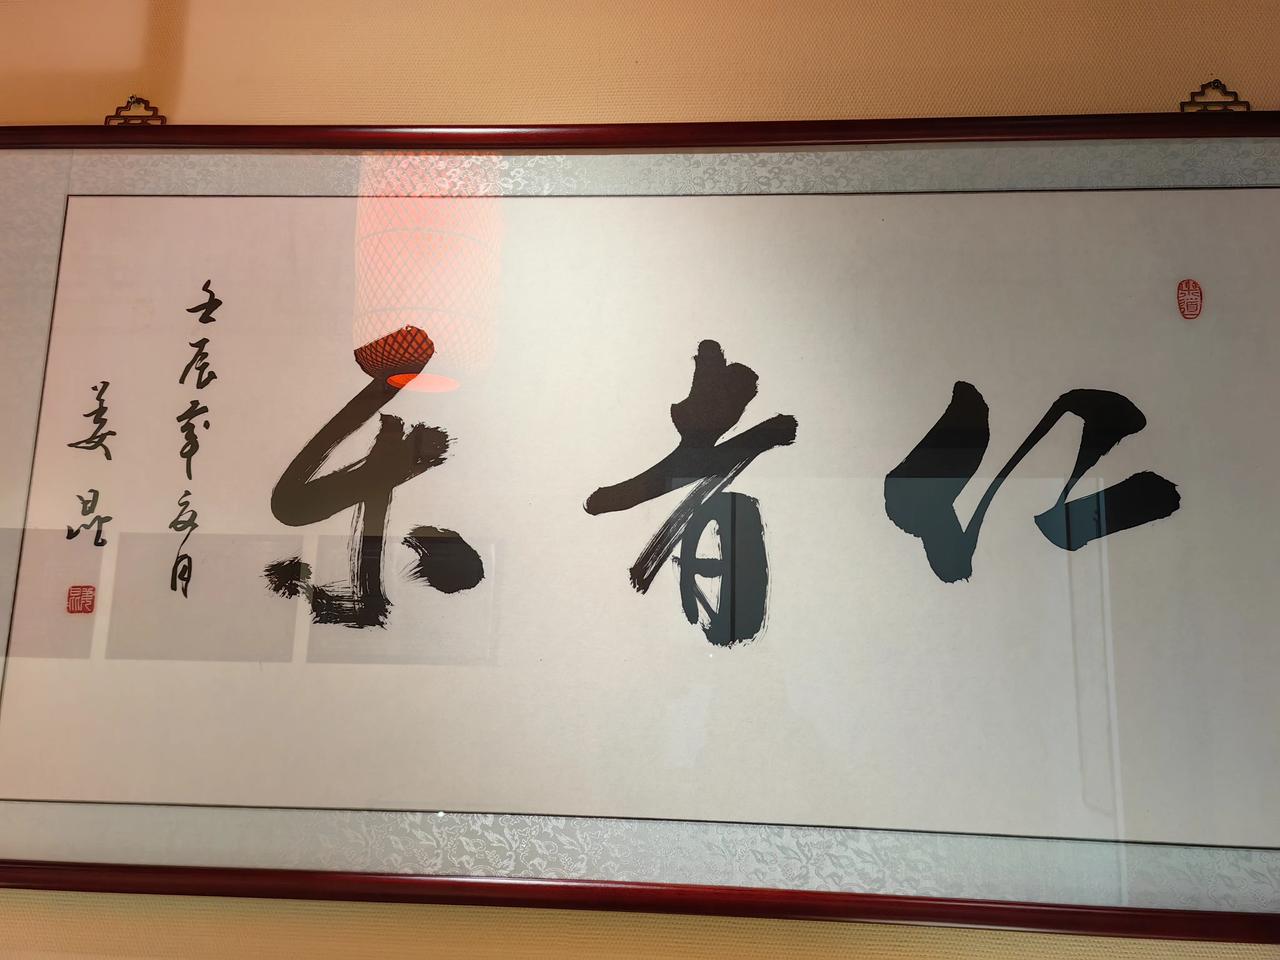 仁者乐
壬辰年夏月
姜昆